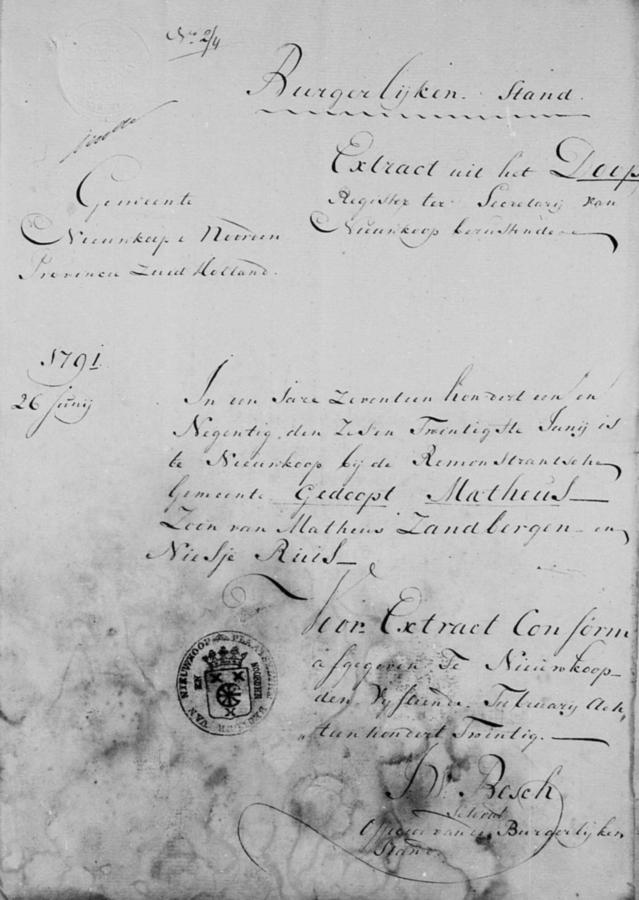 No 2/4
Burgerlijken Stand.
Extract uit het Doop
Register ter Secretarij van
Nieuwkoop berustende
Gemeente
Nieuwkoop & Noorden
Provincie Zuid Holland.
1791
26 Junij
In een Jare Zeventien hondert een en
Negentig, den Zes en Twintigste Junij is
te Nieuwkoop bij de Remonstrantsche
Gemeente Gedoopt Matheus
Zoon van Matheus Zandbergen en
Niesje Ruis
Voor Extract Conform
afgegeven Te Nieuwkoop
den Vyftiende February Ach,
tienhondert Twintig.
VAN NIEUWKOOP EN NOORDEN
Resch
Officier van den Burgerlijken
Stand